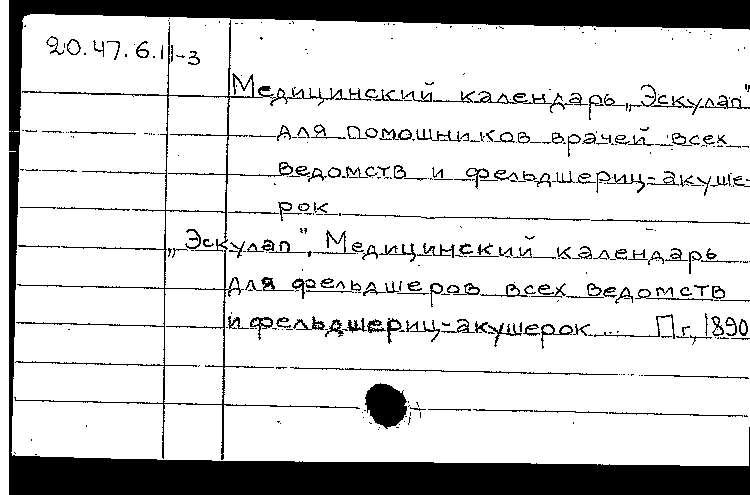 20.47.6.11-3
Медицинский календарь „Эскулап"
для помошников врачей всех
ведомств и фельдшериц-акуше-
рок.
„Эскулап". Медицинский календарь
для фельдшеров всех ведомств
и фельдшериц-акушерок... Пг, 1890